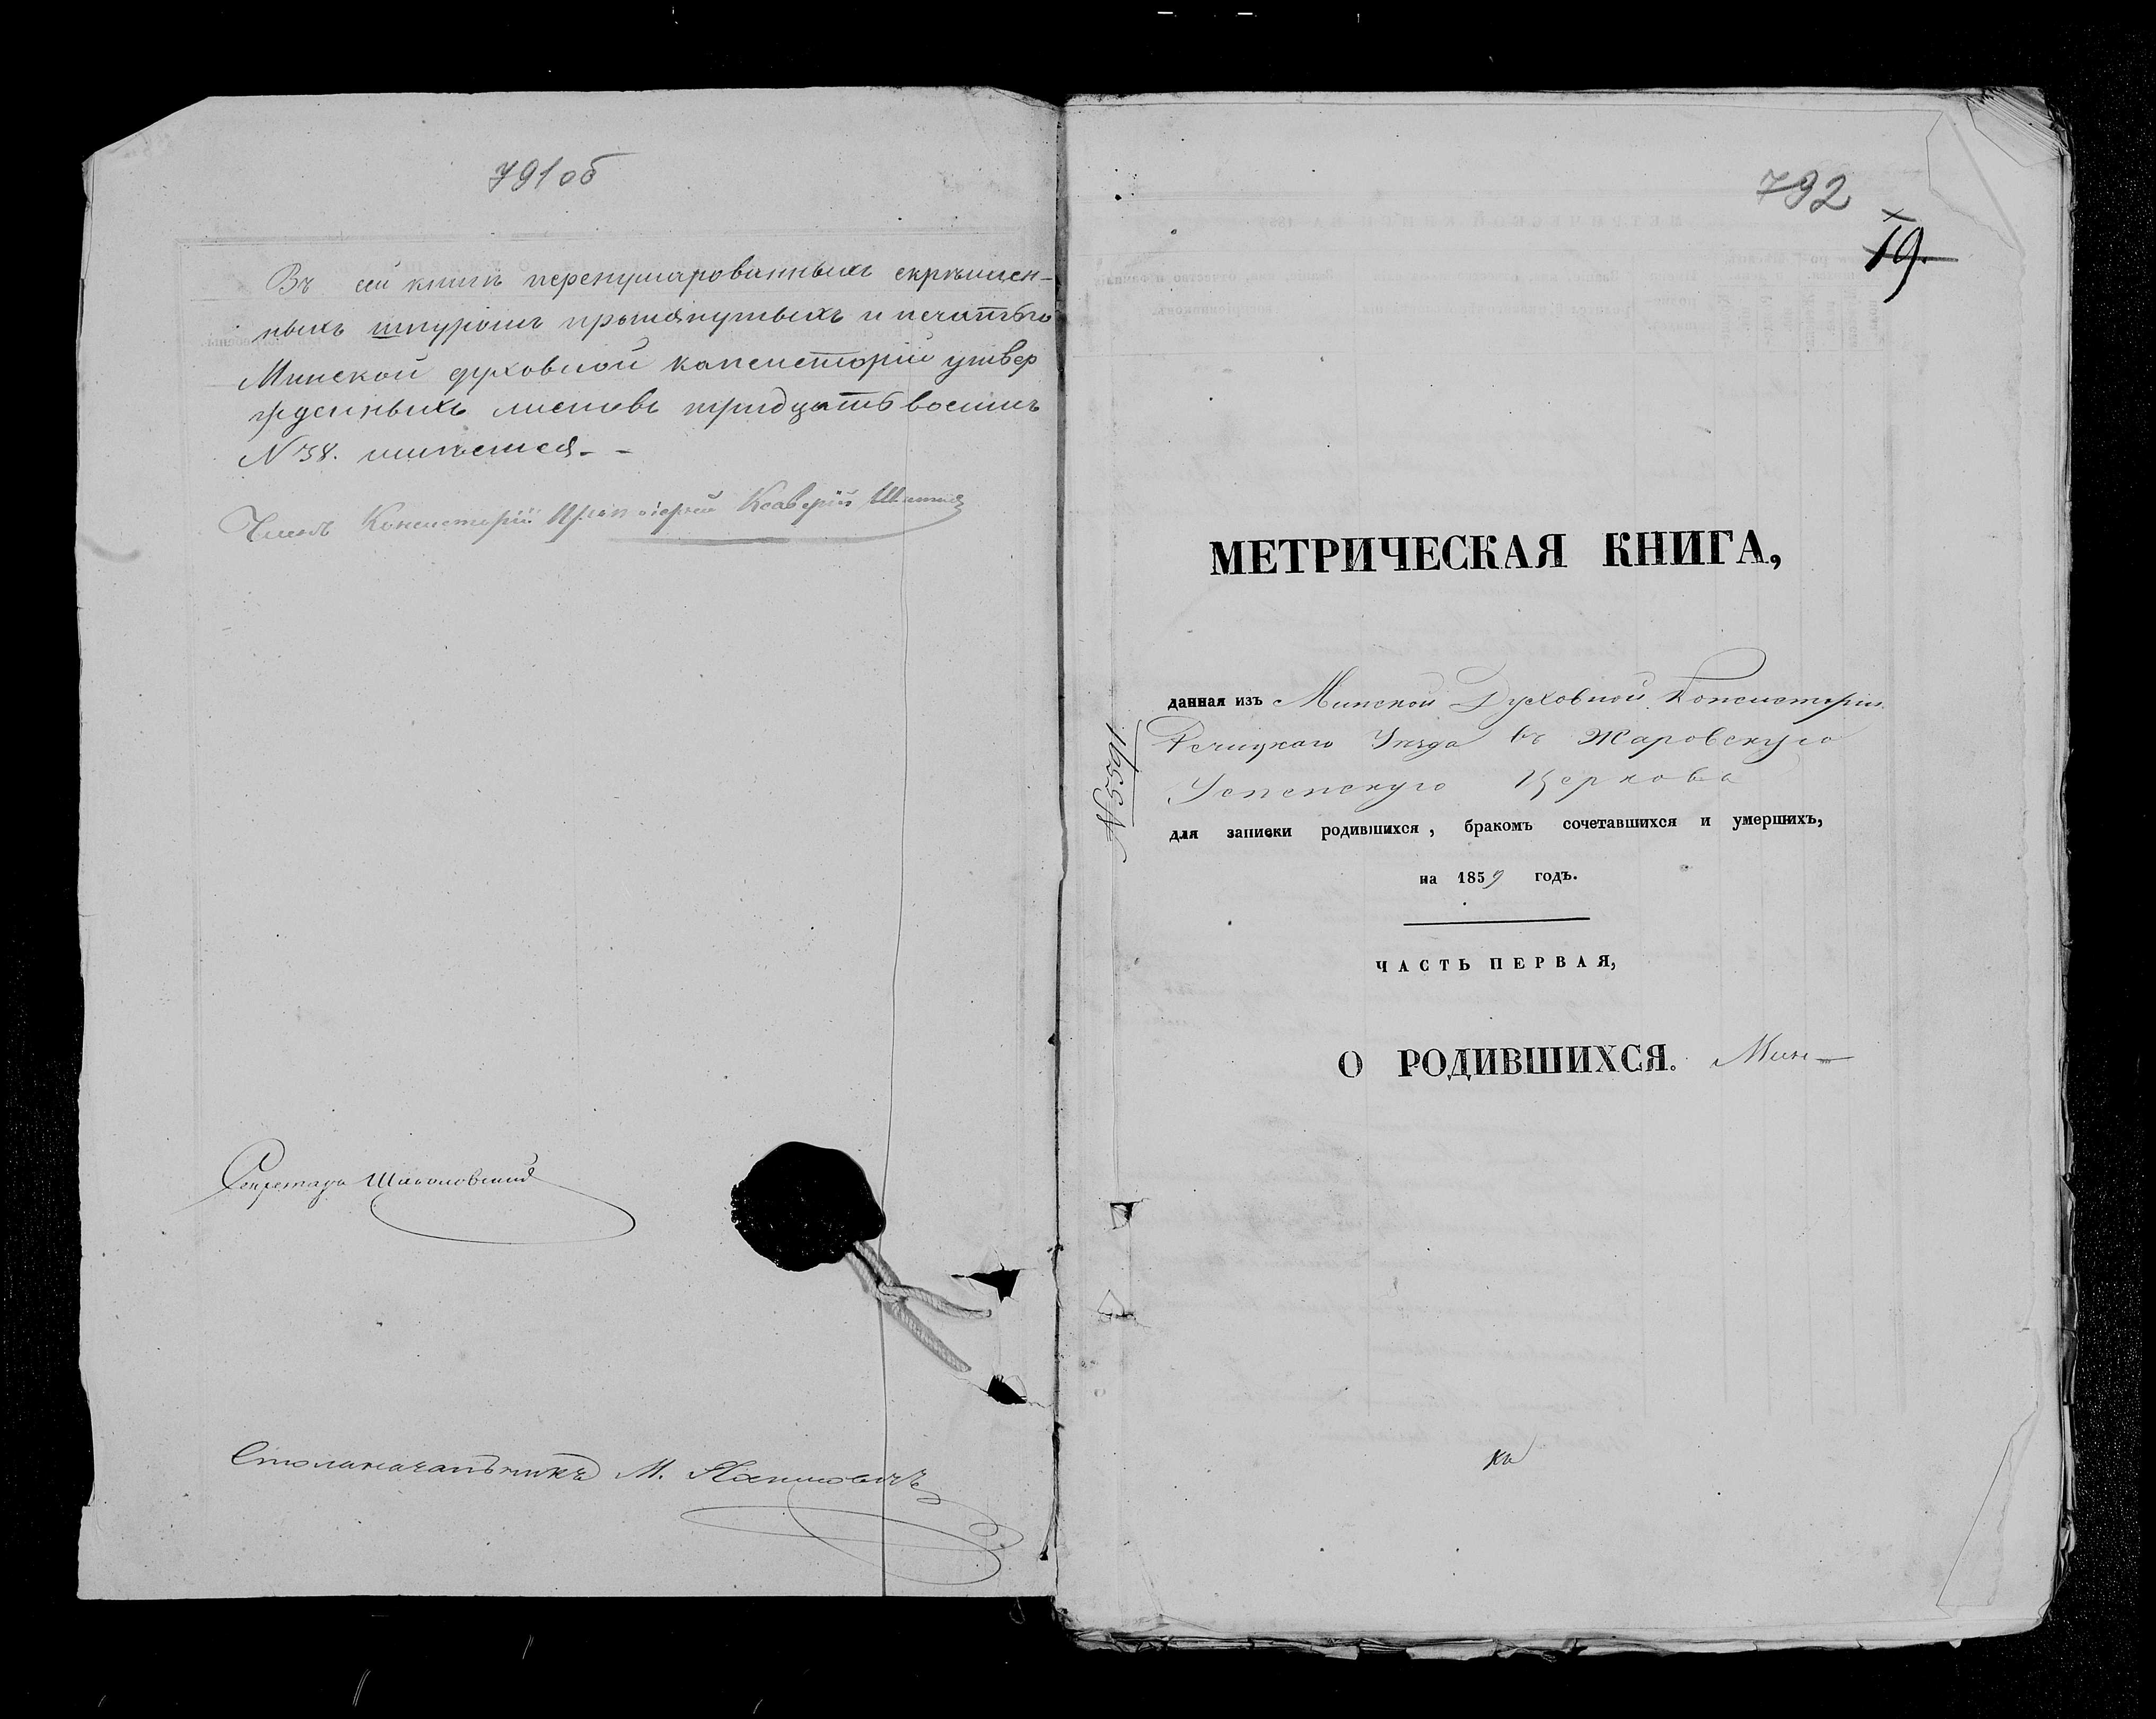 791об
Въ сей книгѣ перенумерованныхъ скрѣплен-
ныхъ шнуромъ протянутыхъ и печатью
Минской духовной консисторіи утвер
жденныхъ листовъ тридцать восемь
N 38. имѣется. -
Членъ Консисторіи Протоіерей Ксаверій
Секретарь
Столоначальникъ М.
792
19.
МЕТРИЧЕСКАЯ КНИГА,
данная изъ Минской Духовной Консисторіи
Речицкаго Уѣзда въ Жаровскую
Успенскую Церковь
для записки родившихся, бракомъ сочетавшихся и умершихъ,
на 1859 годъ.
ЧАСТЬ ПЕРВАЯ,
О РОДИВШИХСЯ. Мин-
№ 5591